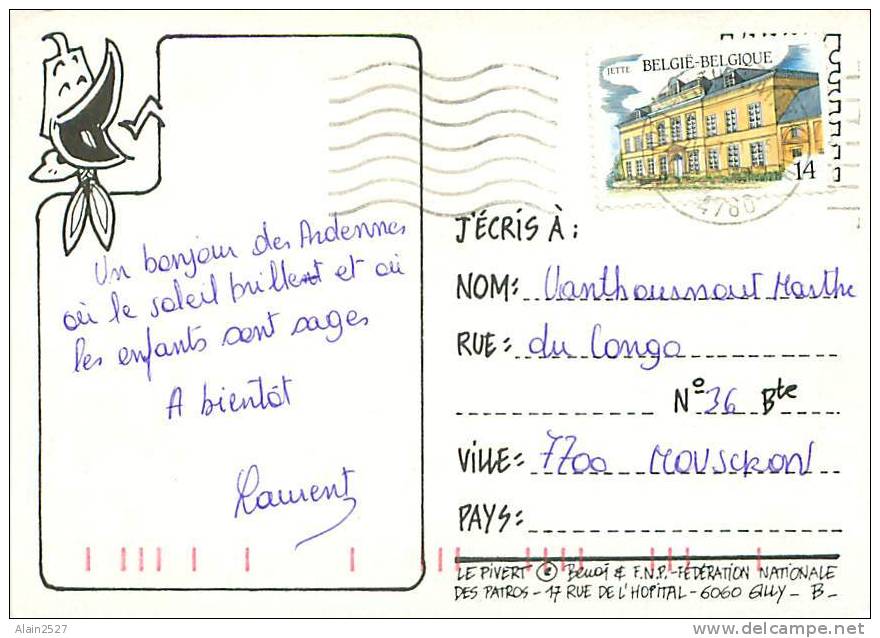 JETTE
BELGIË-BELGIQUE
14
4780
Un bonjour des Ardennes
où le soleil brillent et où
les enfants sont sages
A bientôt
Laurent
J'ÉCRIS À :
NOM: Vanthournout Marthe
RUE: du Congo
N° 36 Bte
VILLE: 7700 MOUSCRON
PAYS:
LE PIVERT © Benoî & F.N.P.-FÉDÉRATION NATIONALE
DES PATROS - 17 RUE DE L'HOPITAL - 6060 GILLY - B -
Alain2527
delcampe.net